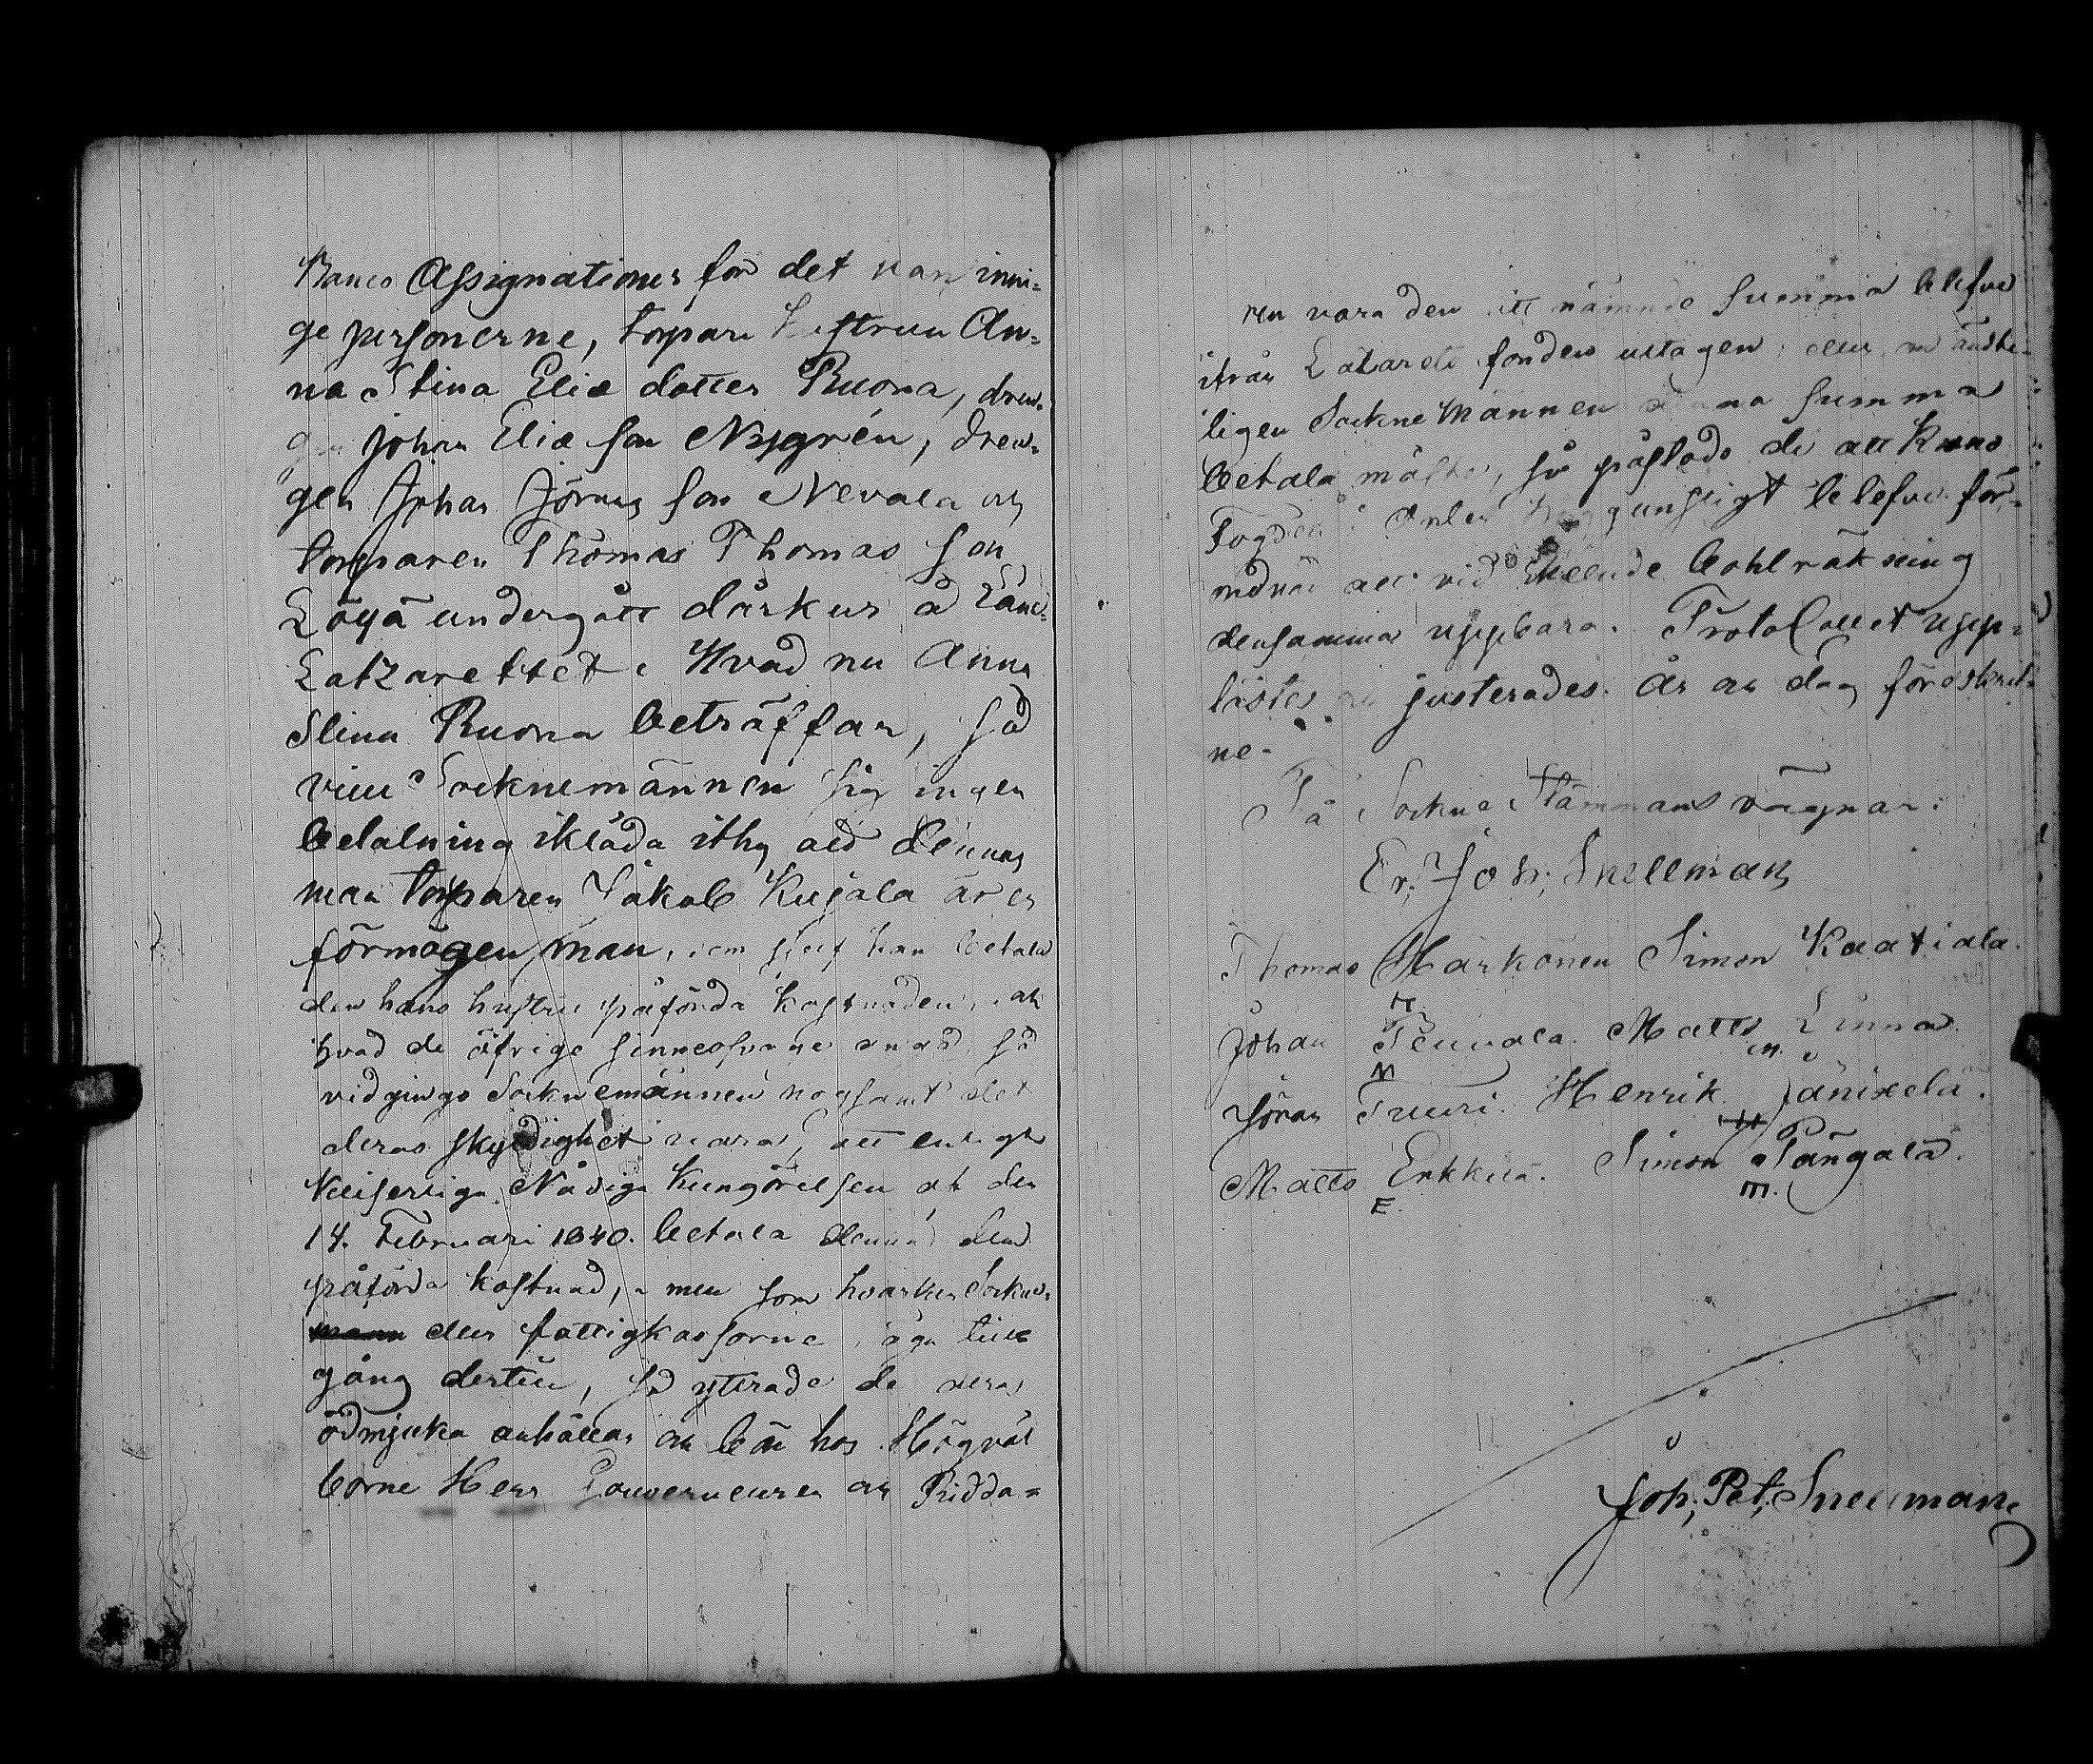 Banco Assignationer för det van inni-
ge personerne, torpare hustrun An-
na Stina Eliæ dotter Ruona, dren-
gen Johan Eliæ son Nygrén, dren-
gen Johan Jörans son Nevala och
torparen Thomas Thomas son
Löyä undergått dårkur å Läns-
Latzarettet. Hvad nu Anna
Stina Ruona beträffar, så
vill Socknemännen sig ingen
betalning ikläda ithy att dennas
man torparen Jakob Kujala är en
förmögen man, som sjelf kan betala
den hans hustru påförda kostnaden, och
hvad de öfrige sinnessvage angår, så
vidgingo Socknemännen nogsamt det
deras skyldighet vara, att enligt
Keiserliga Nådiga Kungörelsen af den
14. Februari 1840. betala denna dem
påförda kostnad, men som hvarken Sockne-
mann eller fattigkassorne äga till-
gång dertill, så yttrade de deras
ödmjuka anhållan och bön hos Högväl
borne Herr Gouverneuren och Ridda-
ren vara den ett nämnde summa blefve
ifrån Lazaretts fonden uttagen; eller om ändte-
ligen Sockne Männen denna summa
betala måste, så påstodo de att Krono
Fogden i Orten gunstigt blefve för-
ordnad att vid skeende bohlräkning
densamma uppbära. Protocollet upp-
lästes och justerades. År och dag föreskrif-
ne.
På Sockne Stämmans vägnar:
Er. Joh. Snellman
Thomas Harkonen Simon Kaatiala.
Johan Teuvala. Matts Linna.
Jöran Tuuri. Henrik Jänixelä.
Matts Erkkilä. Simon Pångala.
E. m.
Joh. Pet. Snellman